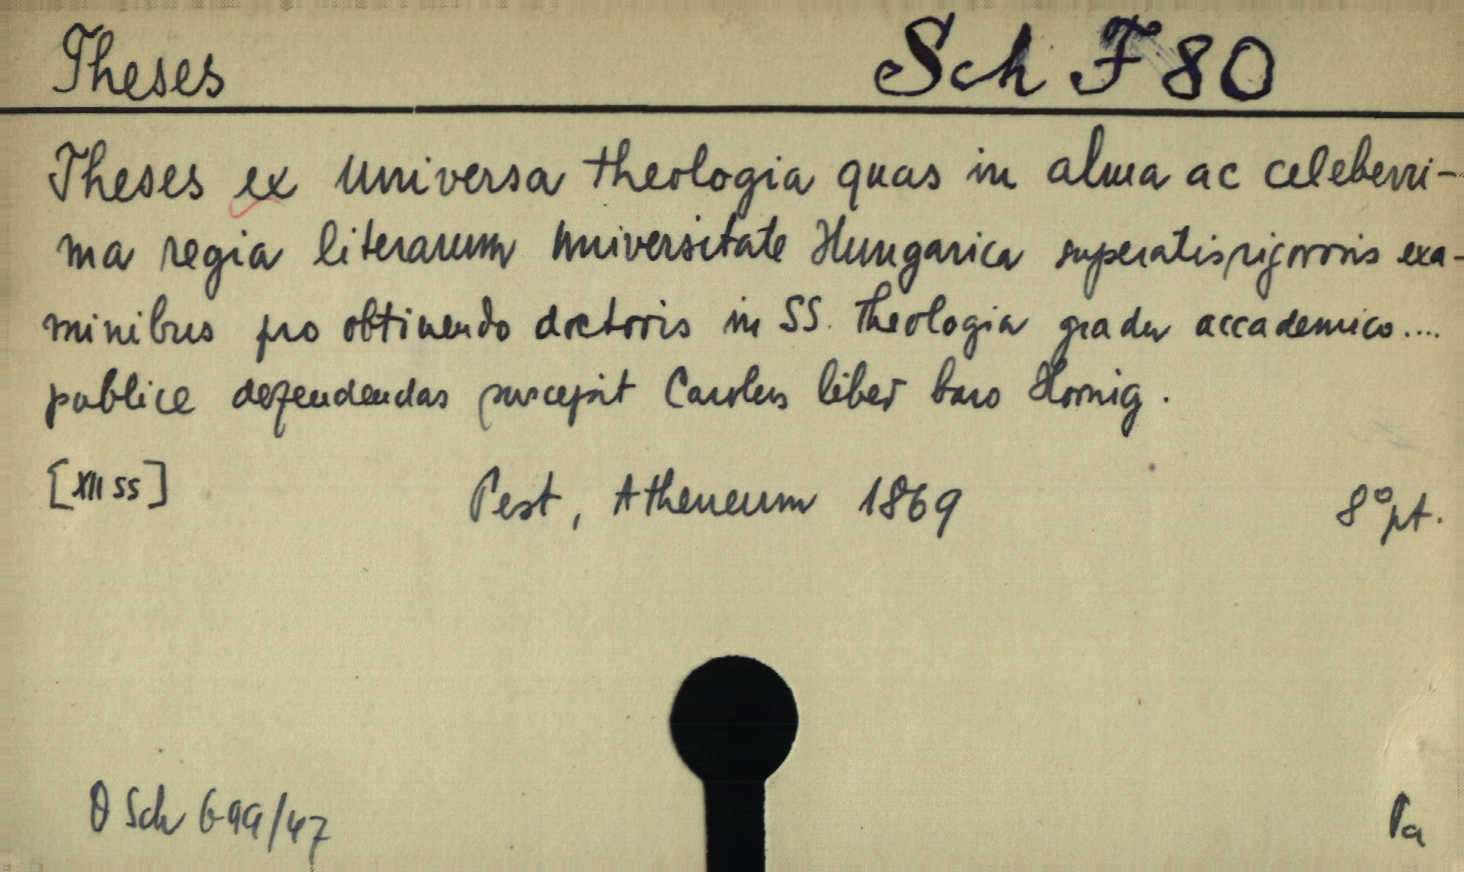 Theses Sch F 80
Theses ex universa theologia quas in alma ac celeberri-
ma regia literarum universitate Hungarica superatis rigorosis exa-
minibus pro obtinendo doctoris in SS. Theologia gradu accademico....
publice defendendas suscepit Carolus liber baro Hornig.
[XII ss]
Pest, Atheneum 1869 8° pt.
Sch 699/47 Pa